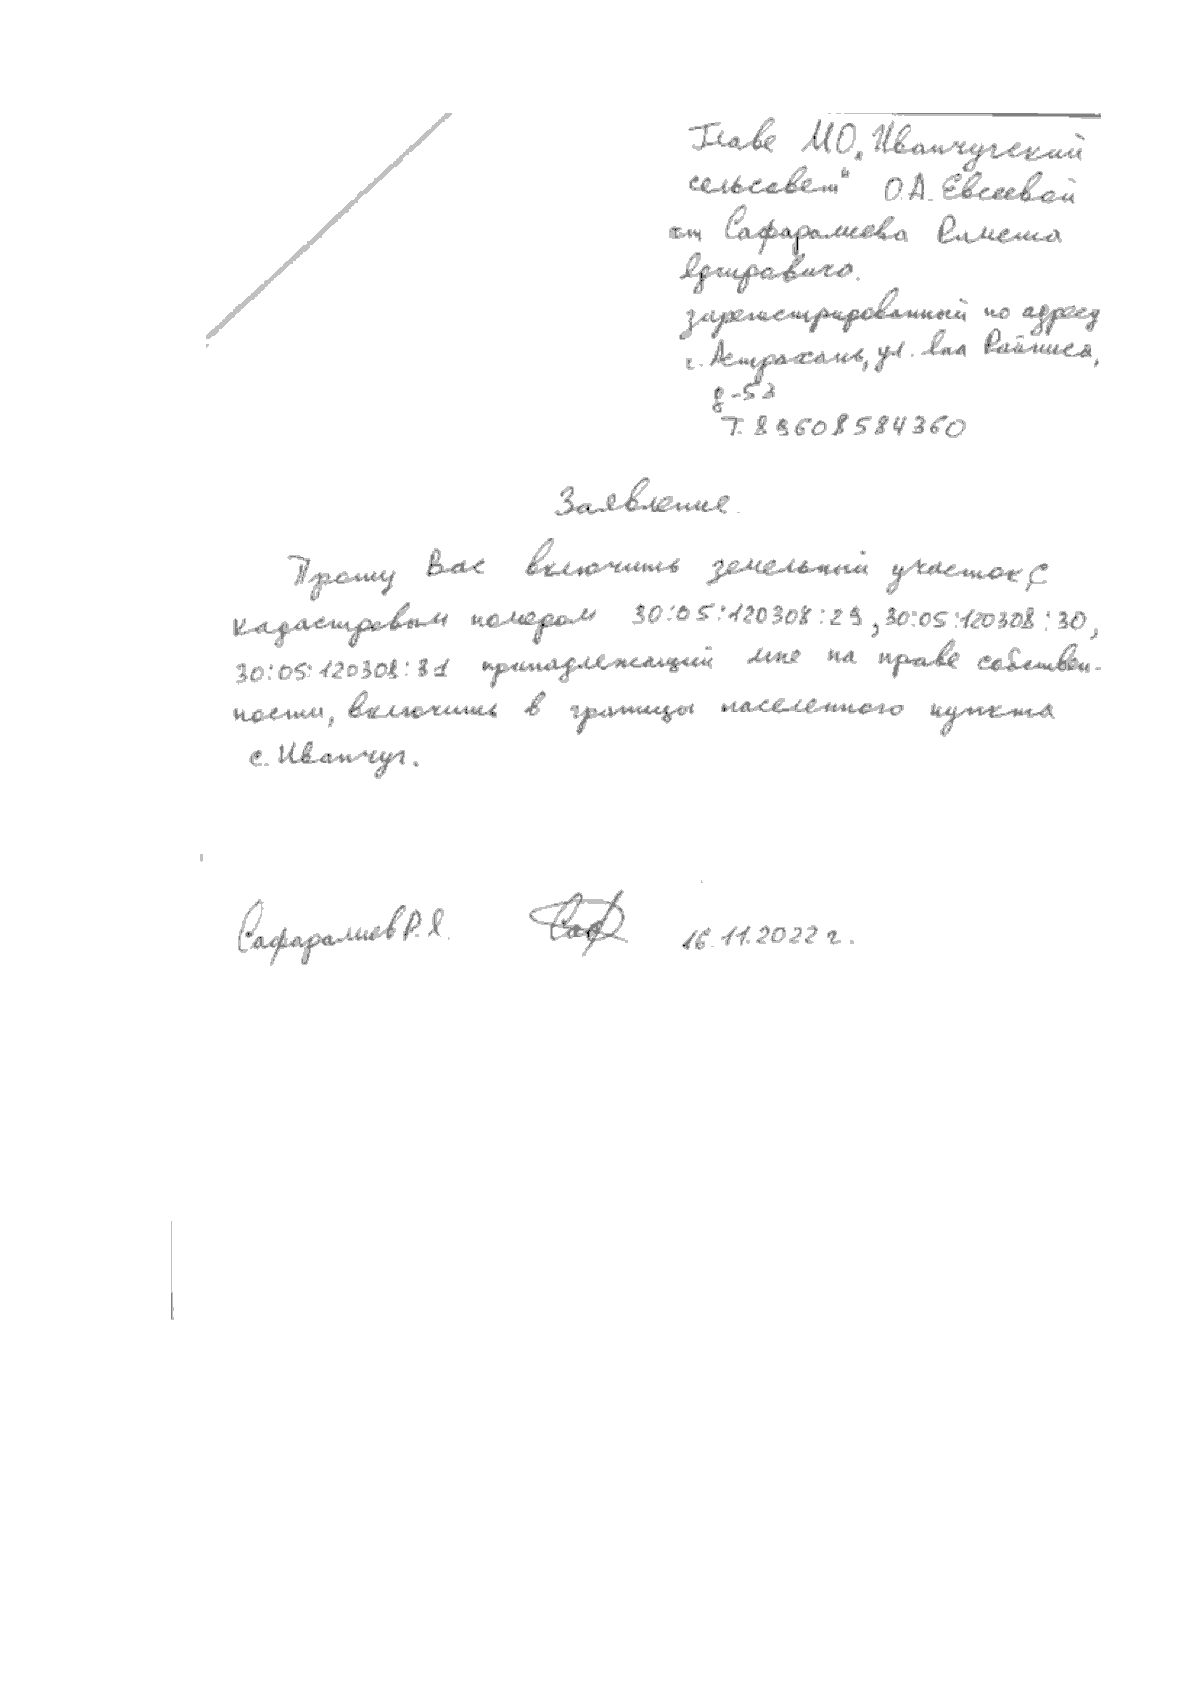 Главе МО „Иванчугский
сельсовет" О.А. Евсеевой
от Сафаралиева
зарегистрированный по адресу
г. Астрахань, ул. Яна Райниса,
д-53
Т. 89608584360
Заявление.
Прошу Вас включить земельный участок, с
кадастровым номером 30:05:120308:29, 30:05:120308:30,
30:05:120308:31 принадлежащий мне на праве собствен-
ности, включить в границы населенного пункта
с. Иванчуг.
Сафаралиев Р.Я. 16.11.2022 г.